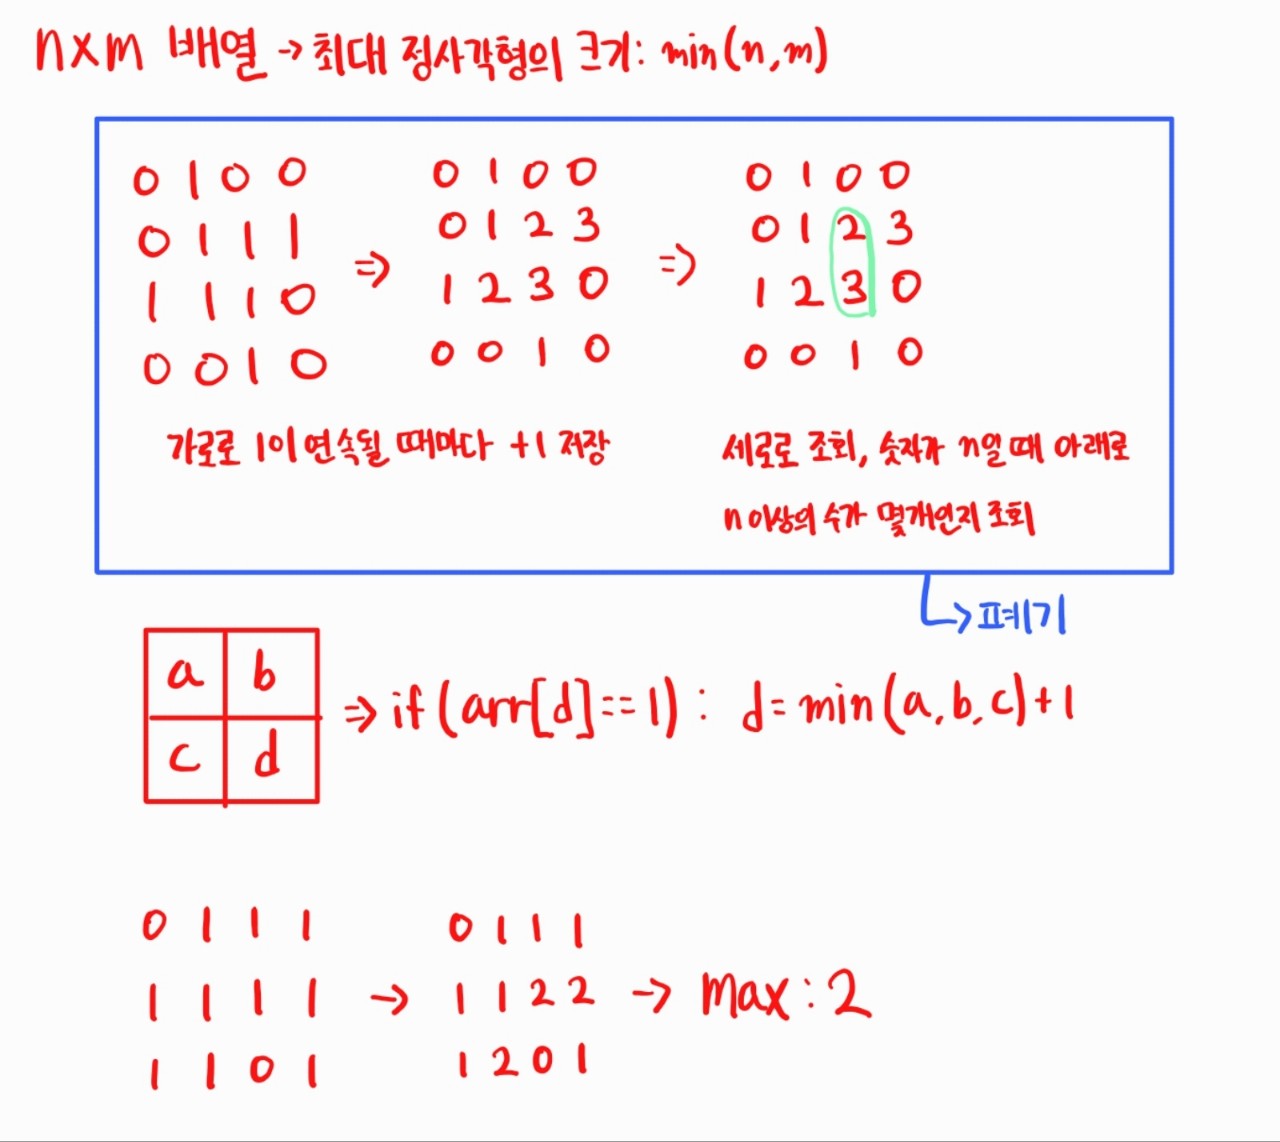 n×m 배열 → 최대 정사각형의 크기: min(n,m)
0 1 0 0
0 1 1 1
1 1 1 0
0 0 1 0
⇒
0 1 0 0
0 1 2 3
1 2 3 0
0 0 1 0
⇒
0 1 0 0
0 1 2 3
1 2 3 0
0 0 1 0
가로로 1이 연속될 때마다 +1 저장
세로로 조회, 숫자가 n일 때 아래로
n 이상의 수가 몇개인지 조회
→ 폐기
a b
c d
⇒ if(arr[d]==1): d=min(a,b,c)+1
0 1 1 1
1 1 1 1
1 1 0 1
→
0 1 1 1
1 1 2 2
1 2 0 1
→ Max:2